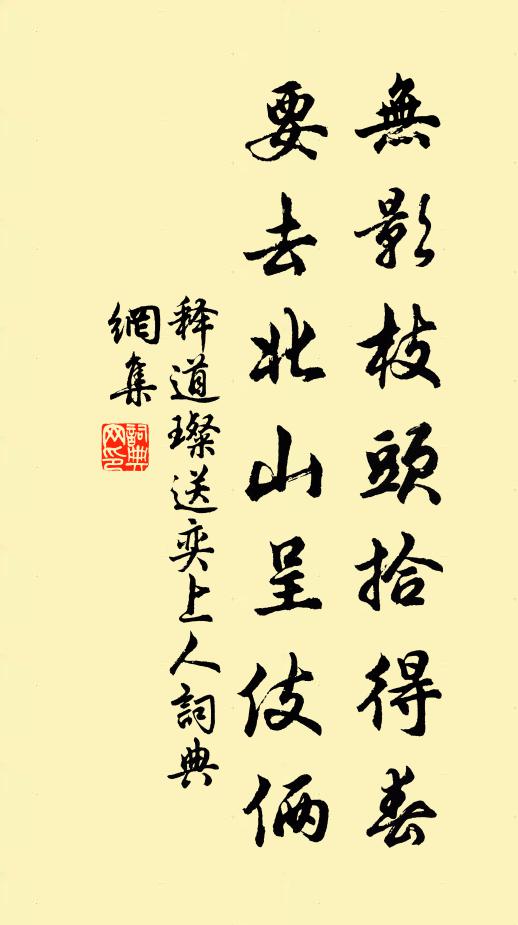 無影枝頭拾得春
要去北山呈伎倆
释道璨送奕上人詞典
網集
詞典
网印